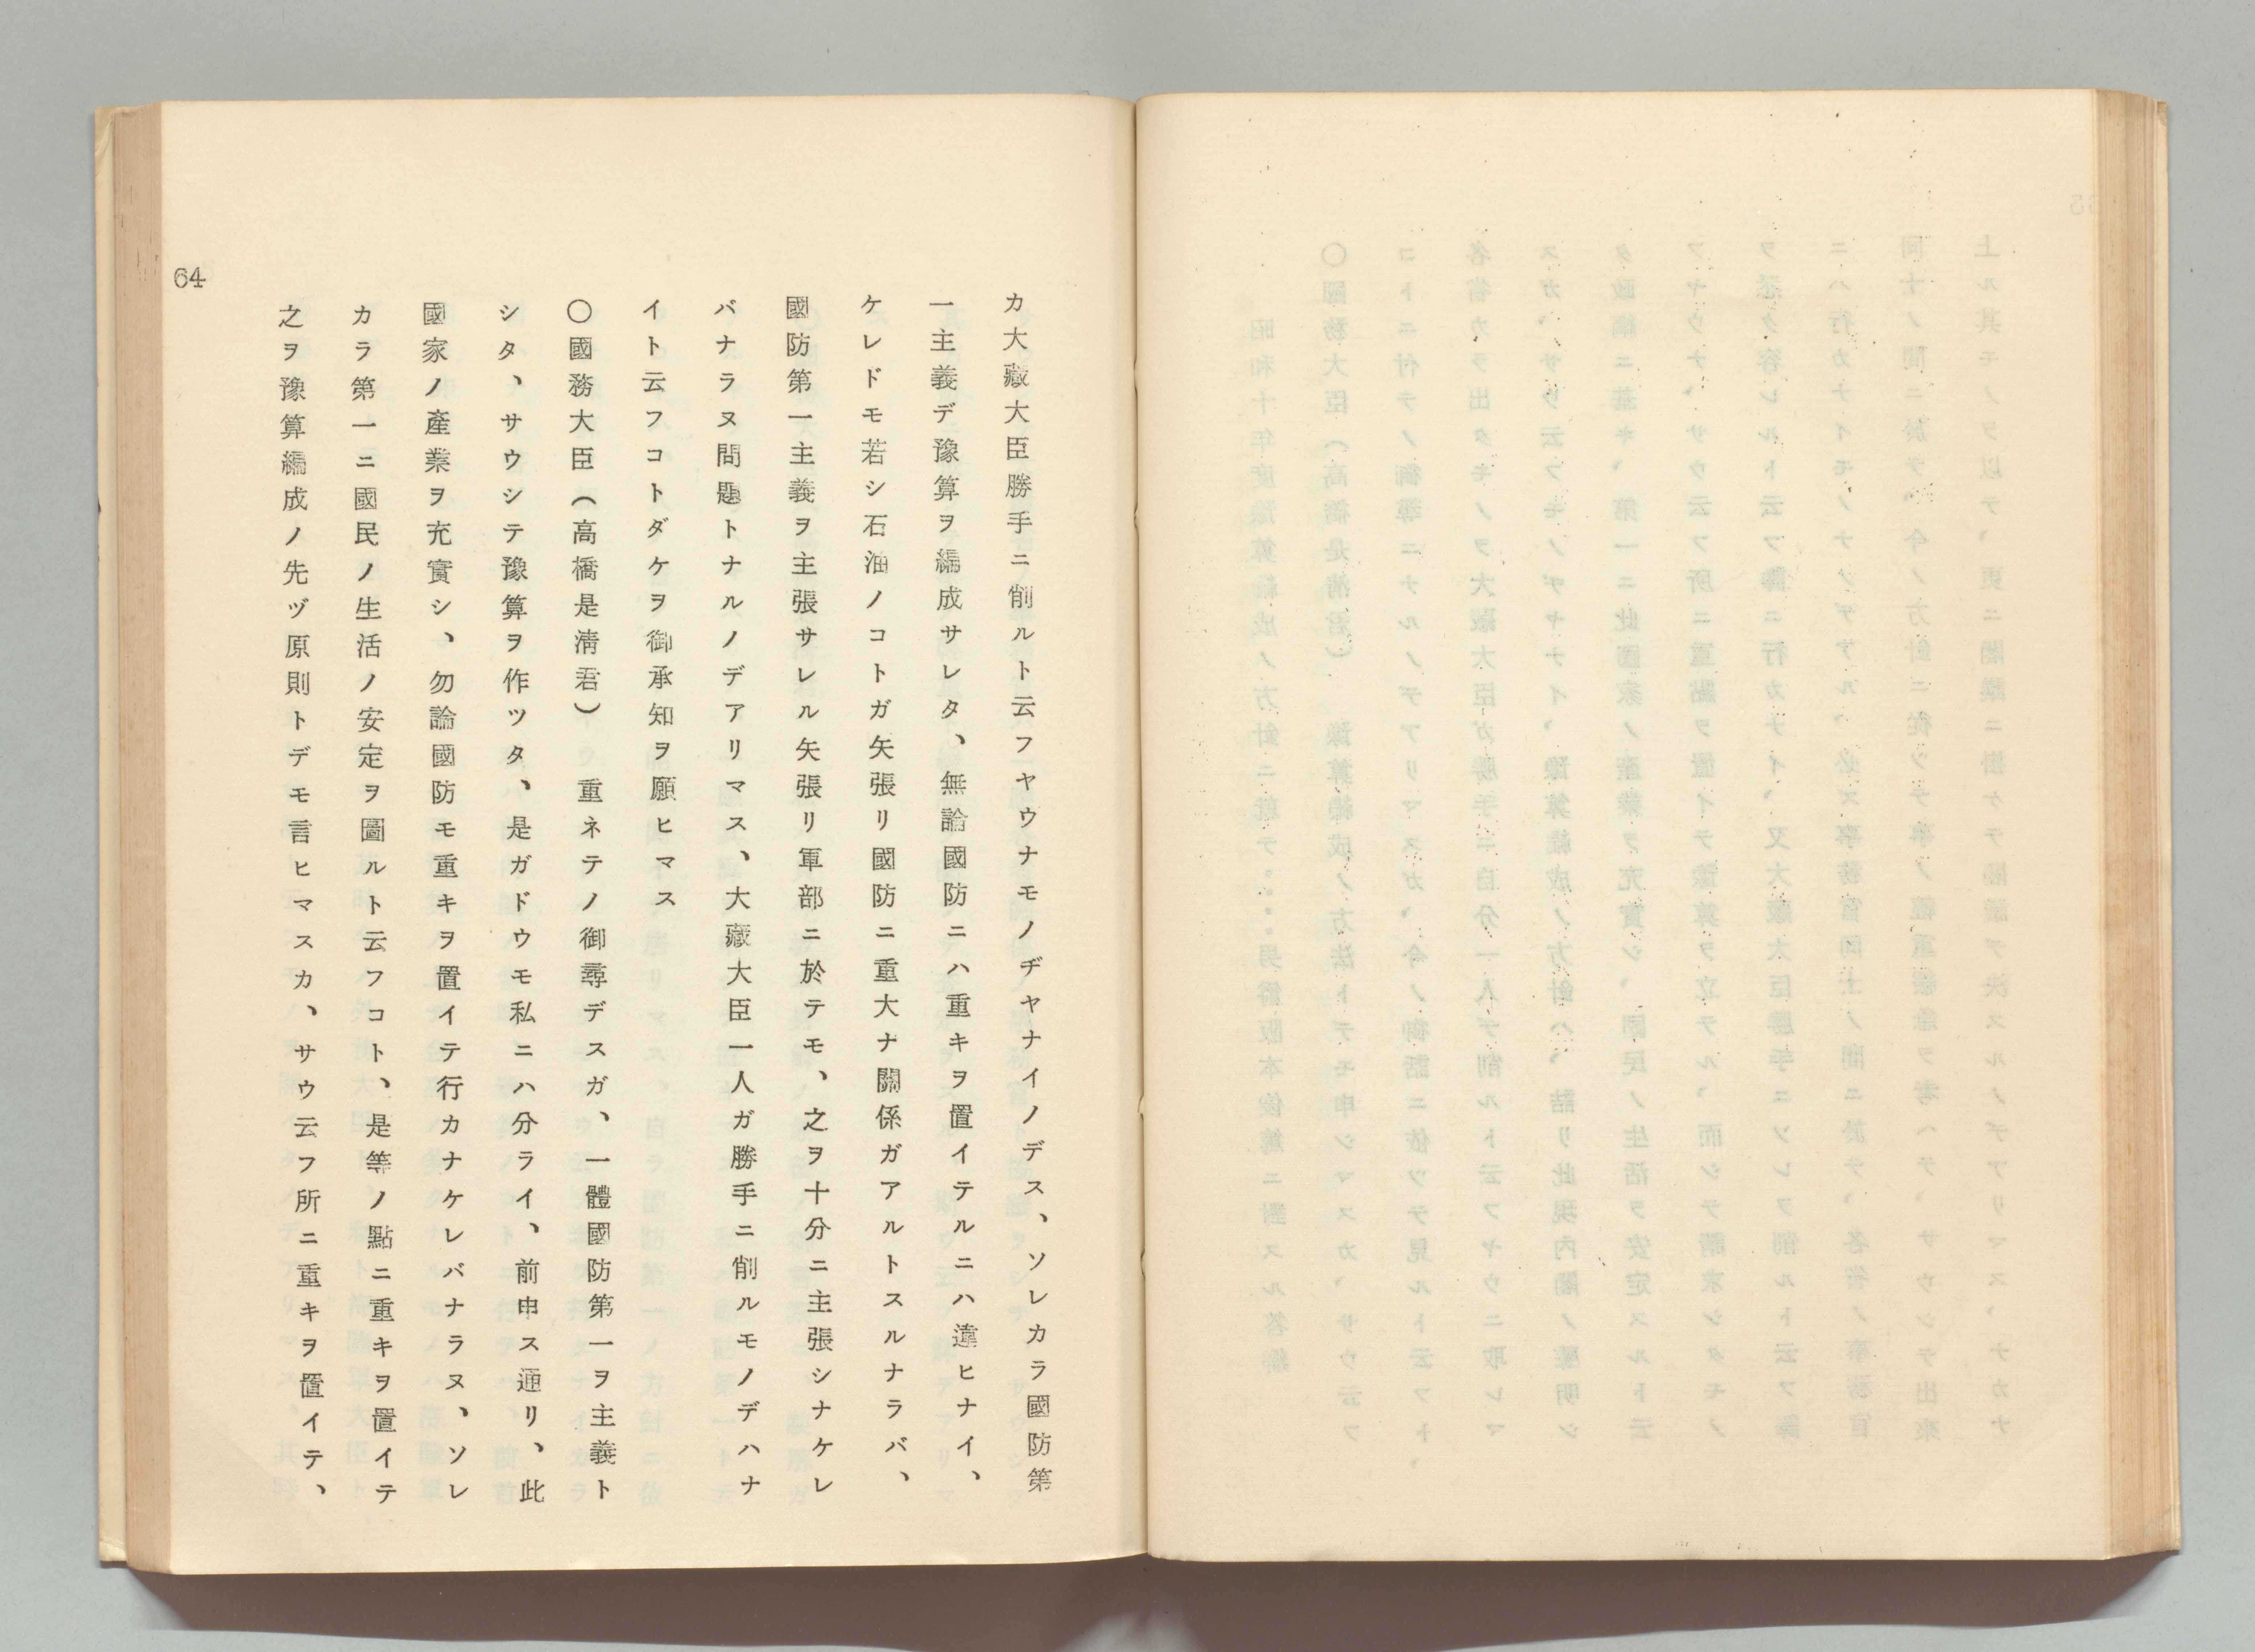 カ大藏大臣勝手ニ削ルト云フヤウナモノヂヤナイノデス、ソレカラ國防第
一主義デ豫算ヲ編成サレタ、無論國防ニハ重キヲ置イテルニハ違ヒナイ、
ケレドモ若シ石油ノコトガ矢張リ國防ニ重大ナ關係ガアルトスルナラバ、
國防第一主義ヲ主張サレル矢張リ軍部ニ於テモ、之ヲ十分ニ主張シナケレ
バナラヌ問題トナルノデアリマス、大藏大臣一人ガ勝手ニ削ルモノデハナ
イト云フコトダケヲ御承知ヲ願ヒマス
〇國務大臣(高橋是淸君) 重ネテノ御尋デスガ、一體國防第一ヲ主義ト
シタ、サウシテ豫算ヲ作ツタ、是ガドウモ私ニハ分ライ、前申ス通リ、此
國家ノ產業ヲ充實シ、勿論國防モ重キヲ置イテ行カナケレバナラヌ、ソレ
カラ第一ニ國民ノ生活ノ安定ヲ圖ルト云フコト、是等ノ點ニ重キヲ置イテ
之ヲ豫算編成ノ先ヅ原則トデモ言ヒマスカ、サウ云フ所ニ重キヲ置イテ、
64